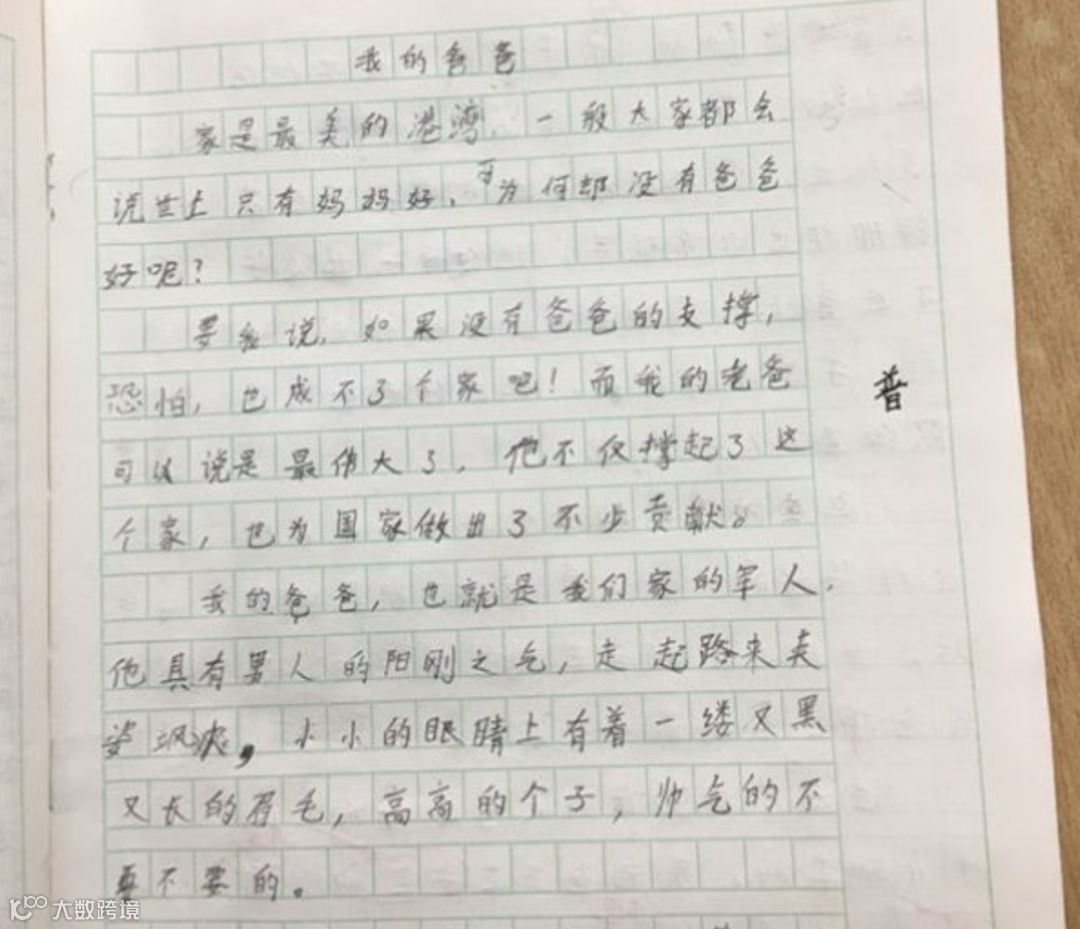 我的爸爸
家是最美的港湾，一般大家都会
说世上只有妈妈好，可为何却没有爸爸
好呢？
要我说，如果没有爸爸的支撑，
恐怕，也成不了个家吧！而我的老爸
可以说是最伟大了，他不仅撑起了这
个家，也为国家做出了不少贡献。
普
我的爸爸，也就是我们家的军人，
他具有男人的阳刚之气，走起路来英
姿飒爽，小小的眼睛上有着一缕又黑
又长的眉毛，高高的个子，帅气的不
要不要的。
大数跨境